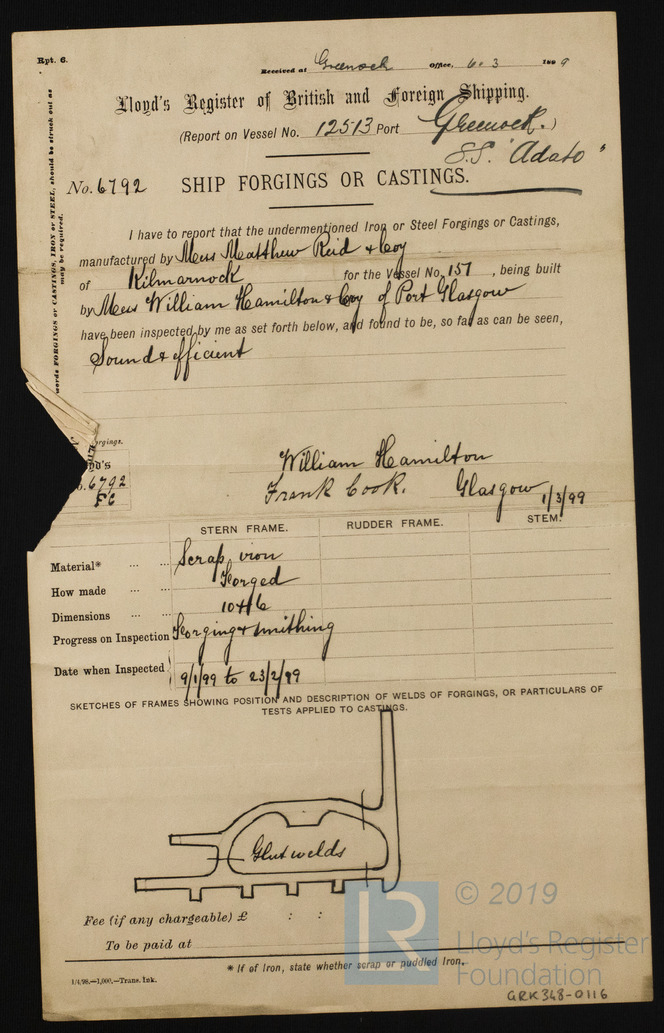 Rpt. 6.
Received at Greenock Office, 6. 3 1899
Lloyd's Register of British and Foreign Shipping.
(Report on Vessel No. 12513 Port Greenock.)
S.S. "Adato"
No. 6792 SHIP FORGINGS OR CASTINGS.
words FORGINGS or CASTINGS, IRON or STEEL, should be struck out as
may be required.
I have to report that the undermentioned Iron or Steel Forgings or Castings,
manufactured by Mess Matthew Reid & Coy
of Kilmarnock for the Vessel No. 157, being built
by Mess William Hamilton & Coy of Port Glasgow
have been inspected by me as set forth below, and found to be, so far as can be seen,
Sound & efficient
orgings.
yd's
6792
FC
William Hamilton
Frank Cook. Glasgow 1/3/99
STERN FRAME. RUDDER FRAME. STEM.
Material* ... ... Scrap iron
How made ... ... Forged
Dimensions ... ...
Progress on Inspection Forging & smithing
Date when Inspected 9/1/99 to 23/2/99
SKETCHES OF FRAMES SHOWING POSITION AND DESCRIPTION OF WELDS OF FORGINGS, OR PARTICULARS OF
TESTS APPLIED TO CASTINGS.
Glut welds
Fee (if any chargeable) £ : :
To be paid at
* If of Iron, state whether scrap or puddled Iron.
1/4/98.—1,000.—Trans. Ink.
LR
© 2019
Lloyd's Register
Foundation
GRK348-0116